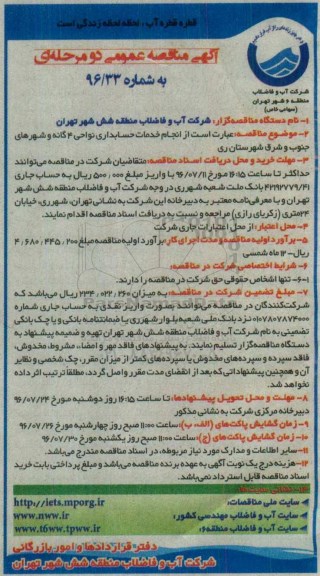 قطره قطره آب ، لحظه لحظه زندگی است
آگهی مناقصه عمومی دو مرحله‌ای
به شماره ۹۶/۳۳
شرکت آب و فاضلاب
منطقه ۶ شهر تهران
(سهامی خاص)
۱- نام دستگاه مناقصه‌گزار: شرکت آب و فاضلاب منطقه شش شهر تهران
۲- موضوع مناقصه: عبارت است از انجام خدمات حسابداری نواحی ۴ گانه و شهرهای
جنوب و شرق شهرستان ری
۳- مهلت خرید و محل دریافت اسناد مناقصه: متقاضیان شرکت در مناقصه می‌توانند
حداکثر تا ساعت ۱۶:۱۵ مورخ ۹۶/۰۷/۱۱ با واریز مبلغ ۵۰۰,۰۰۰ ریال به حساب جاری
۴۲۹۲۷۷۹/۴۱ بانک ملت شعبه شهرری در وجه شرکت آب و فاضلاب منطقه شش شهر
تهران و با معرفی‌نامه معتبر به دبیرخانه این شرکت به نشانی تهران، شهرری، خیابان
۲۴متری (زکریای رازی) مراجعه و نسبت به دریافت اسناد مناقصه اقدام نمایند.
۴- محل اعتبار: از محل اعتبارات جاری شرکت
۵- برآورد اولیه مناقصه و مدت اجرای کار: برآورد اولیه مناقصه مبلغ ۴,۶۸۰,۴۴۵,۲۰۰
ریال- ۱۲ ماه شمسی
۶- شرایط اختصاصی شرکت در مناقصه:
۶-۱- تنها اشخاص حقوقی حق شرکت در مناقصه را دارند.
۷- مبلغ تضمین شرکت در مناقصه: به میزان ۲۳۴,۰۲۲,۲۶۰ ریال می‌باشد که
شرکت‌کنندگان در مناقصه می‌توانند بصورت واریز نقدی به حساب جاری شماره
۰۱۰۷۸۰۷۸۷۴۰۰۰ نزد بانک ملی شعبه بلوار شهرری یا ضمانتنامه بانکی و یا چک بانکی
تضمینی به نام شرکت آب و فاضلاب منطقه شش شهر تهران تهیه و ضمیمه پیشنهاد به
دستگاه مناقصه‌گزار تسلیم نمایند. به پیشنهادهای فاقد مهر و امضا، مشروط، مخدوش،
فاقد سپرده و سپرده‌های مخدوش یا سپرده‌های کمتر از میزان مقرر، چک شخصی و نظایر
آن و همچنین پیشنهاداتی که بعد از انقضای مدت مقرر واصل گردد، مطلقاً ترتیب اثر داده
نخواهد شد.
۸- مهلت و محل تحویل پیشنهادها: تا ساعت ۱۶:۱۵ روز دوشنبه مورخ ۹۶/۰۷/۲۴
دبیرخانه مرکزی شرکت به نشانی مذکور
۹- زمان گشایش پاکت‌های (الف، ب): ساعت ۱۱:۰۰ صبح روز چهارشنبه مورخ ۹۶/۰۷/۲۶
۱۰- زمان گشایش پاکت‌های (ج): ساعت ۱۱:۰۰ صبح روز یکشنبه مورخ ۹۶/۰۷/۳۰
۱۱- سایر اطلاعات و مدارک مورد نیاز مربوطه، در اسناد مناقصه مندرج می‌باشد.
۱۲- هزینه درج یک نوبت آگهی به عهده برنده مناقصه می‌باشد و مبلغ پرداختی بابت خرید
اسناد مناقصه قابل استرداد نمی‌باشد.
سایت ملی مناقصات: http://iets.mporg.ir
سایت آب و فاضلاب مهندسی کشور: www.nww.ir
سایت آب و فاضلاب منطقه۶: www.t6ww.tpww.ir
دفتر قراردادها و امور بازرگانی
شرکت آب و فاضلاب منطقه شش شهر تهران